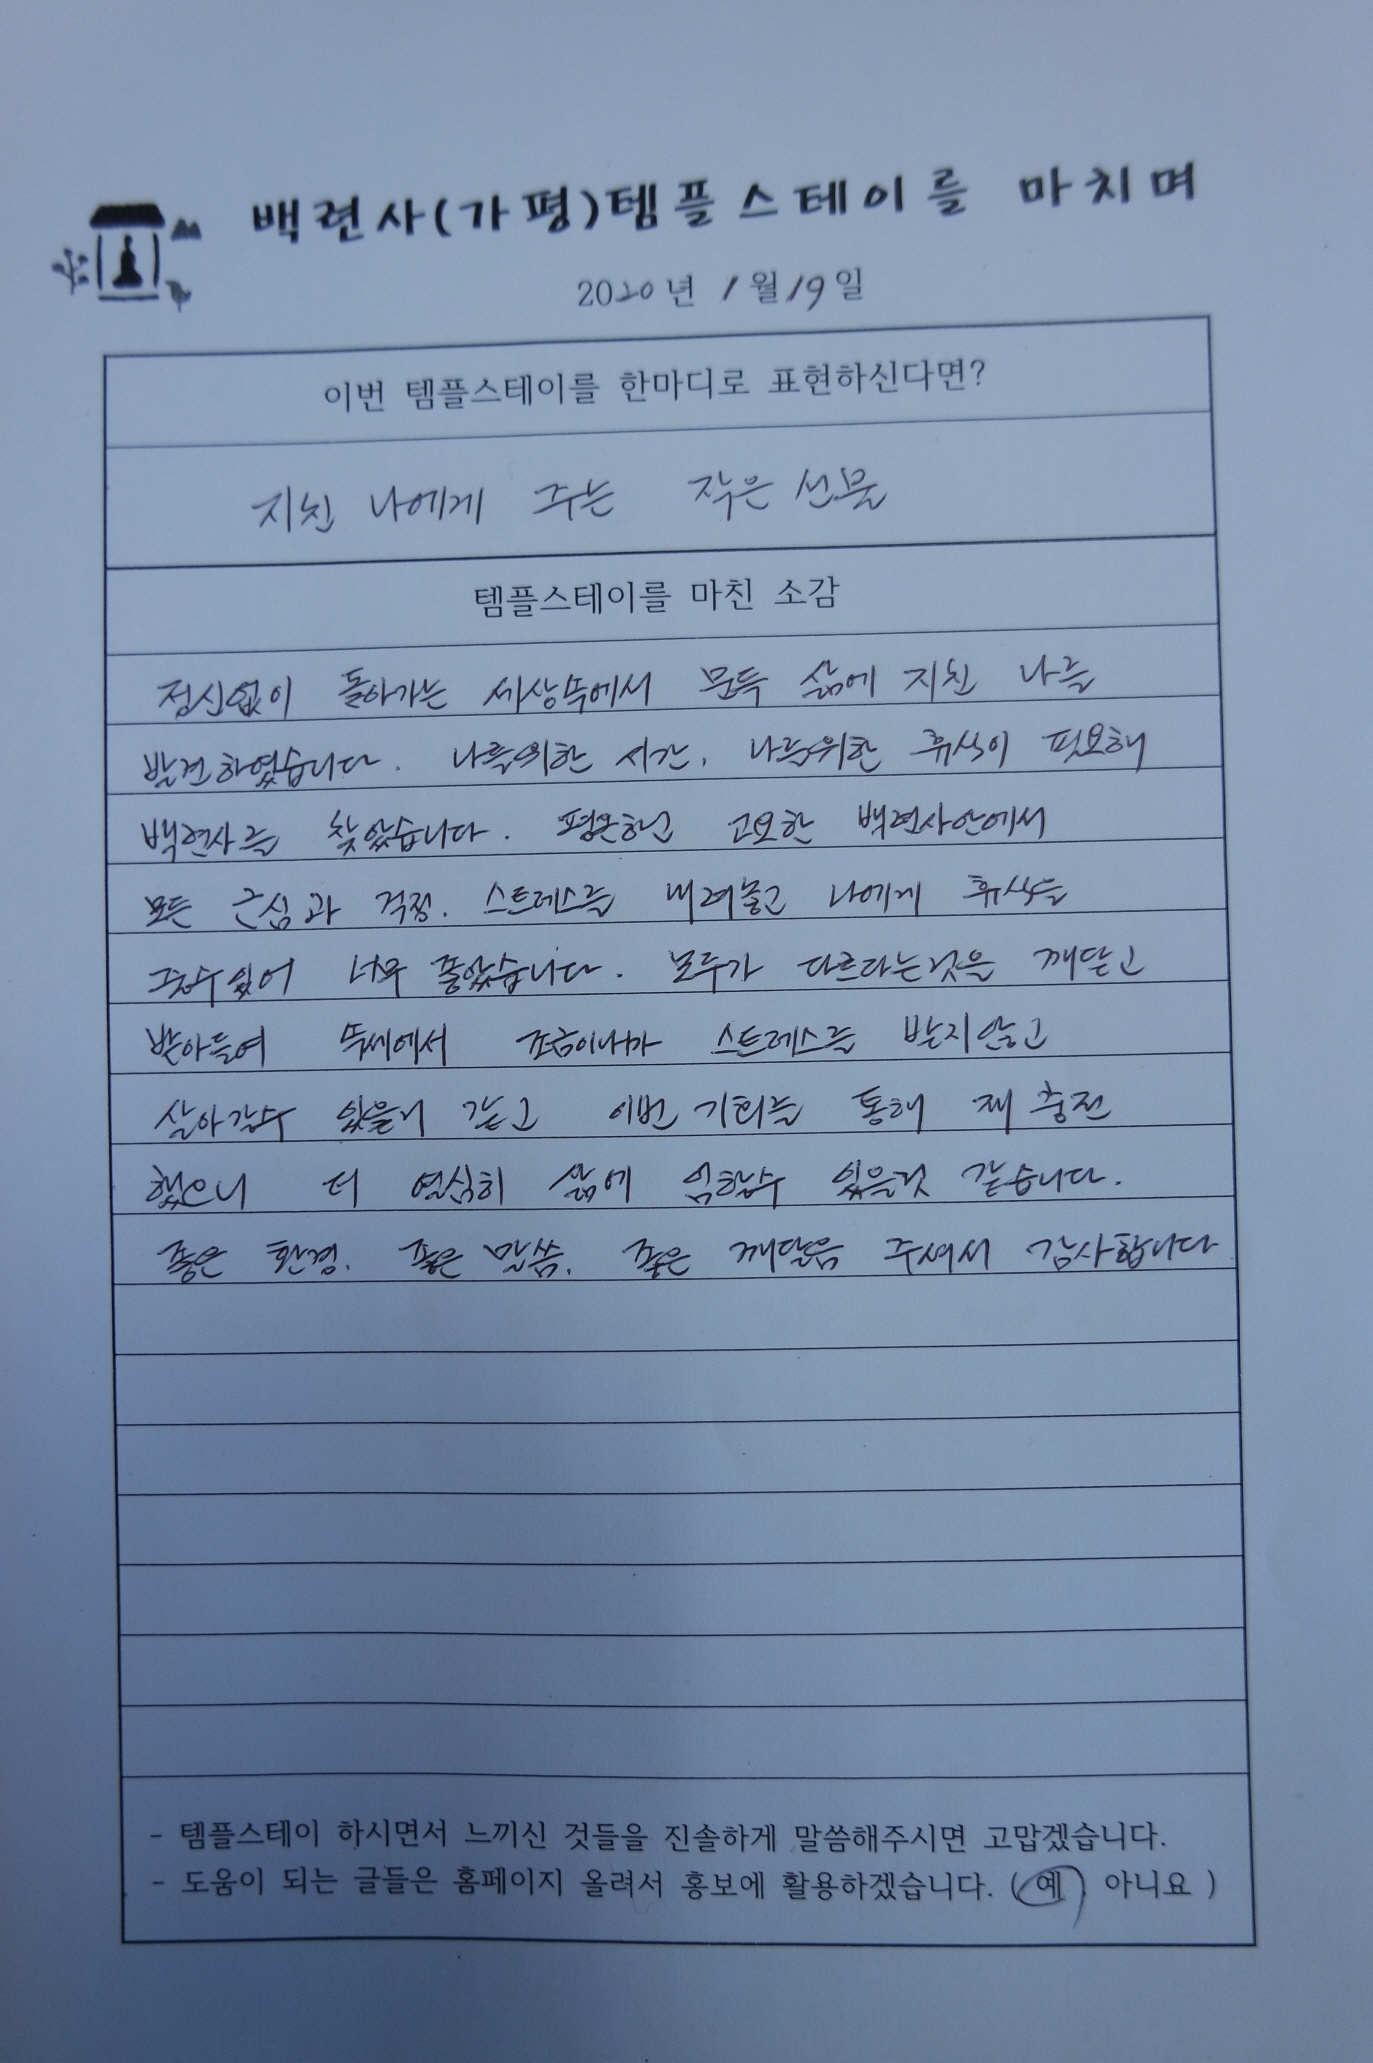 백련사(가평)템플스테이를 마치며
2020년 1월 19일
이번 템플스테이를 한마디로 표현하신다면?
지친 나에게 주는 작은 선물
템플스테이를 마친 소감
정신없이 돌아가는 세상속에서 문득 삶에 지친 나를
발견하였습니다. 나를위한 시간, 나를위한 휴식이 필요해
백련사를 찾았습니다. 평온하고 고요한 백련사안에서
모든 근심과 걱정. 스트레스를 내려놓고 나에게 휴식을
줄수있어 너무 좋았습니다. 모두가 다르다는것을 깨닫고
받아들여 속세에서 조금이나마 스트레스를 받지않고
살아갈수 있을거 같고 이번 기회를 통해 재 충전
했으니 더 열심히 삶에 임할수 있을것 같습니다.
좋은 환경. 좋은 말씀. 좋은 깨달음 주셔서 감사합니다
- 템플스테이 하시면서 느끼신 것들을 진솔하게 말씀해주시면 고맙겠습니다.
- 도움이 되는 글들은 홈페이지 올려서 홍보에 활용하겠습니다. ( 예 , 아니요 )